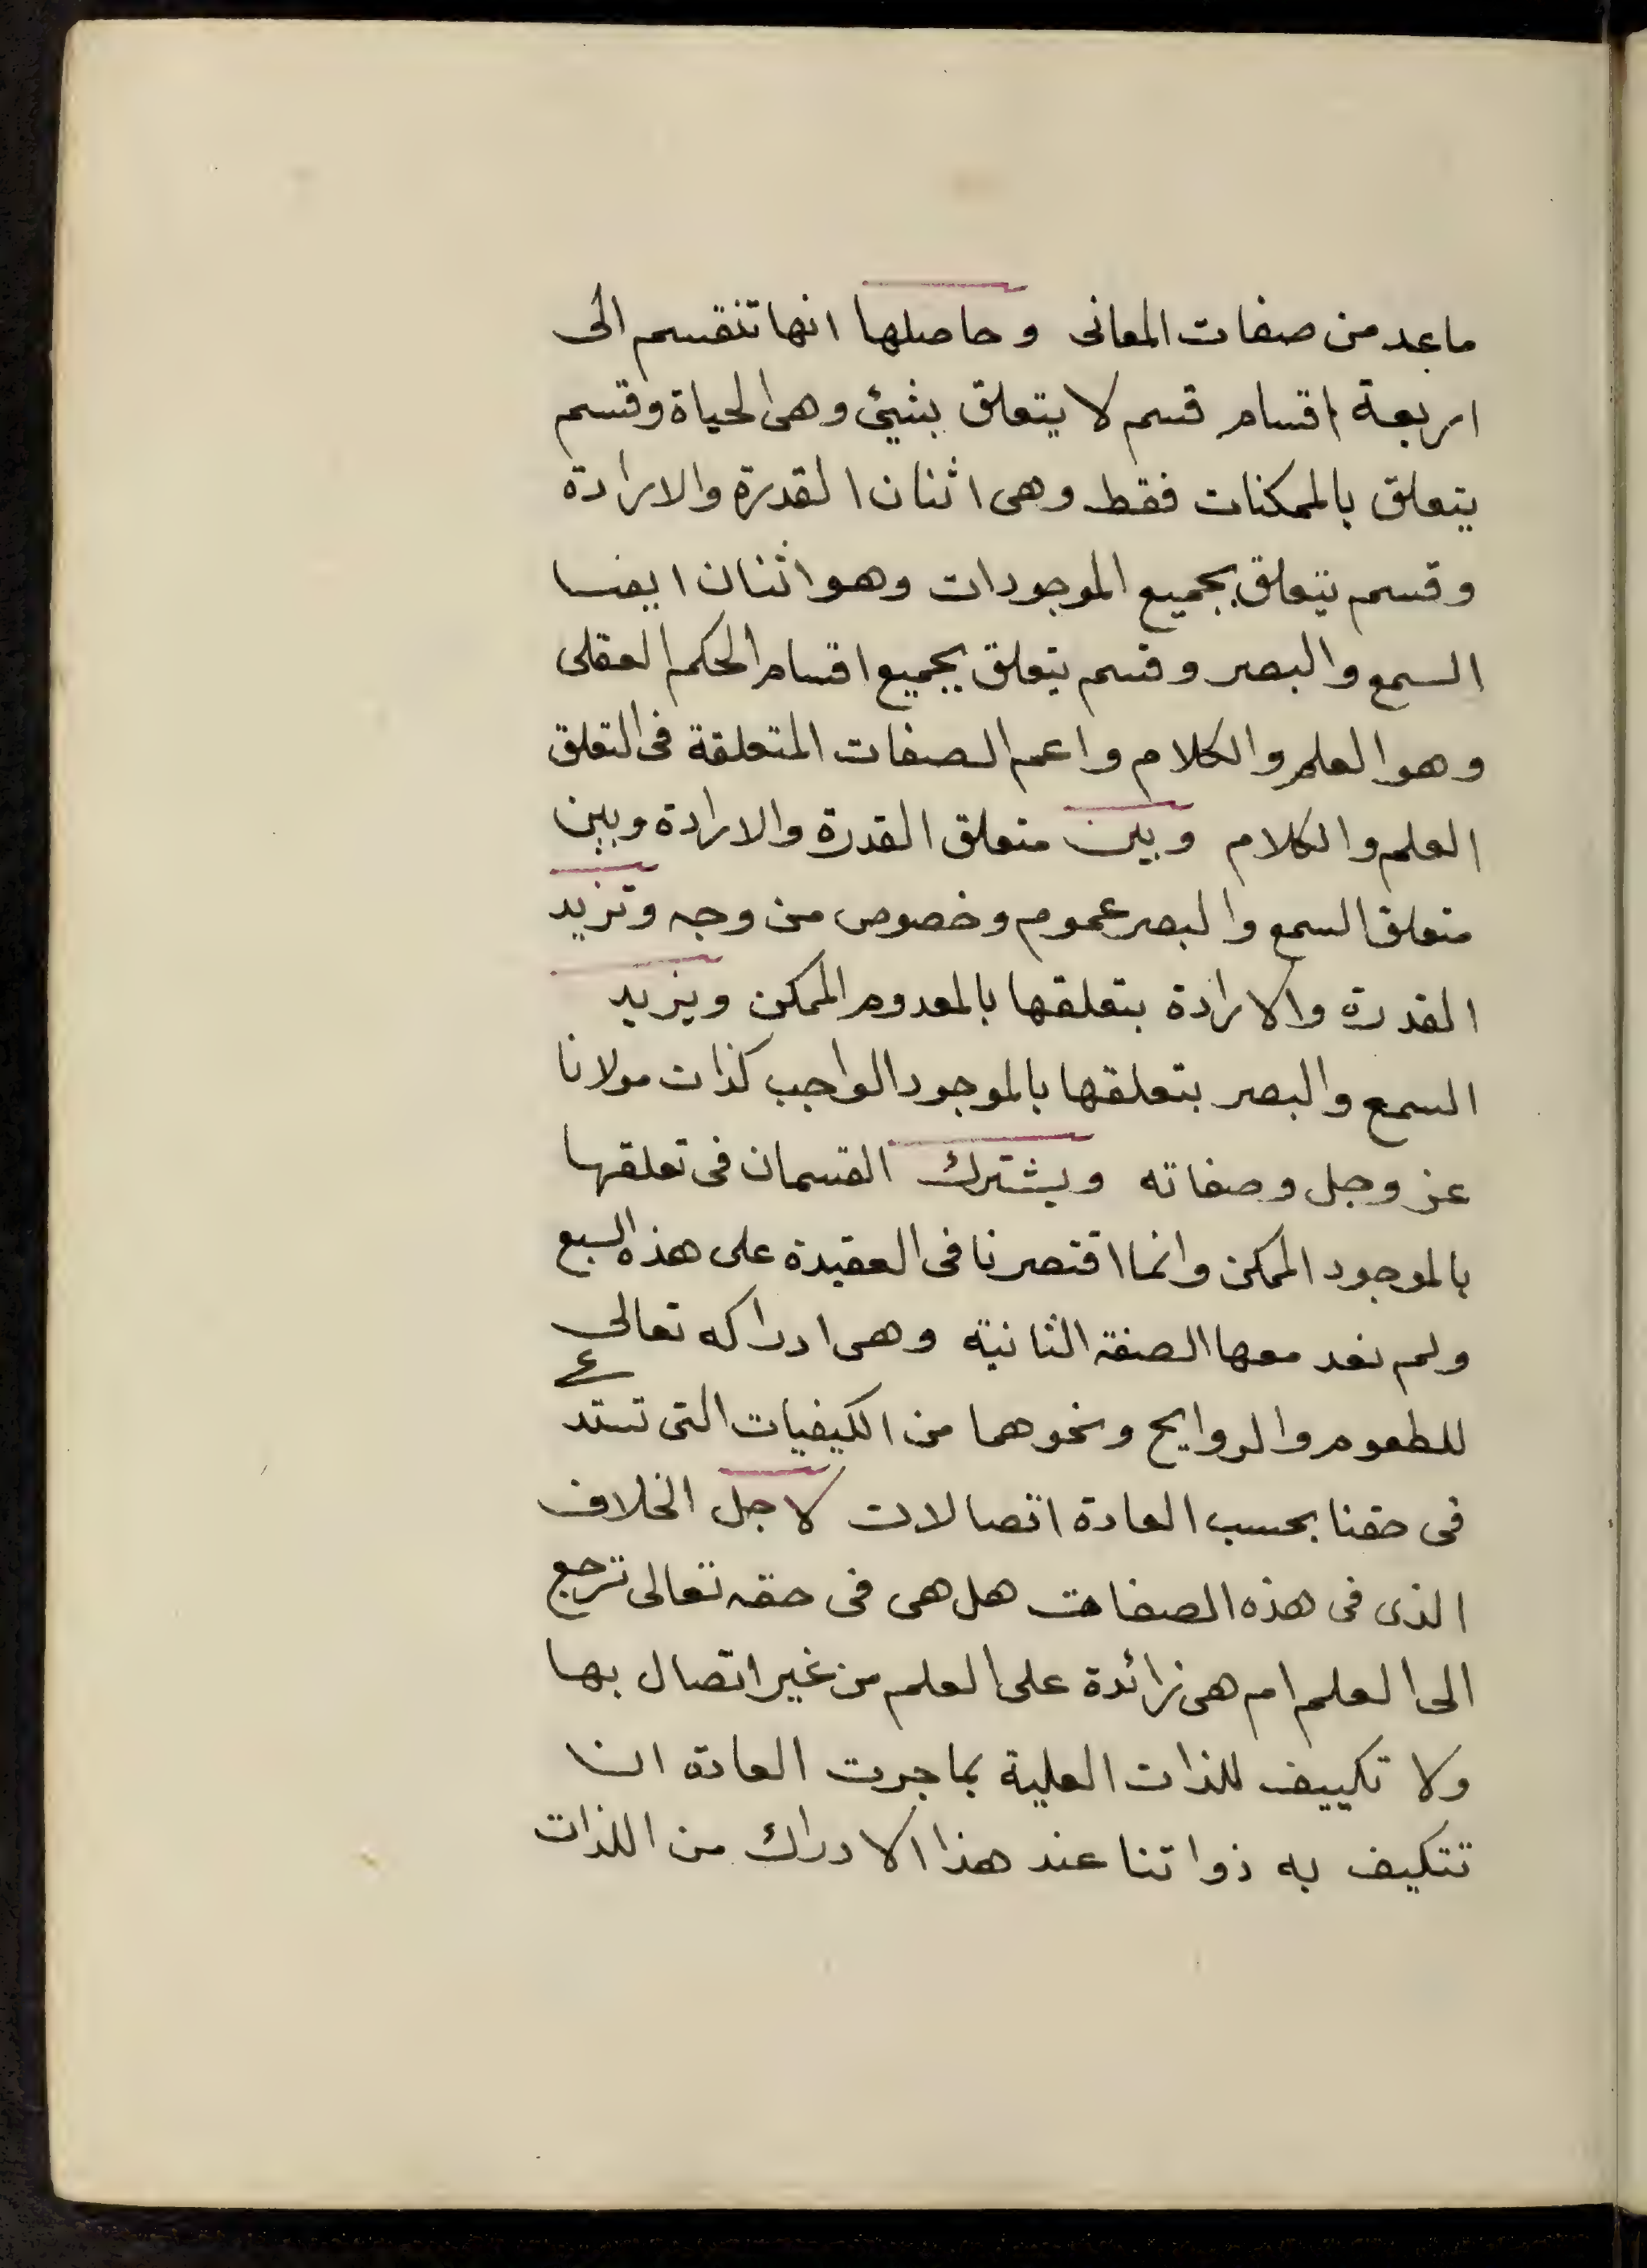 ماعد من صفات المعانى وحاصلها انها تنقسم الى
اربعة اقسام قسم لا يتعلق بشيئ وهى الحياة وقسم
يتعلق بالممكنات فقط وهى اثنان القدرة والارادة
وقسم يتعلق بجميع الموجودات وهو اثنان ايضا
السمع والبصر وقسم يتعلق بجميع اقسام الحكم العقلى
وهو العلم والكلام واعم الصفات المتعلقة فى التعلق
العلم والكلام وبين متعلق القدرة والارادة وبين
متعلق السمع والبصر عموم وخصوص من وجه وتزيد
القدرة والارادة بتعلقها بالمعدوم الممكن ويزيد
السمع والبصر بتعلقها بالموجود الواجب كذات مولانا
عز وجل وصفاته ويشترك القسمان فى تعلقها
بالموجود الممكن وانما اقتصرنا فى العقيدة على هذه السبع
ولم نعد معها الصفة الثانية وهى ادراكه تعالى
للطعوم والروايح ونحوهما من الكيفيات التى تستدع
فى حقنا بحسب العادة اتصالات لاجل الخلاف
الذى فى هذه الصفات هل هى فى حقه تعالى ترجع
الى العلم ام هى زائدة على العلم من غير اتصال بها
ولا تكييف للذات العلية بما جرت العادة ان
تتكيف به ذواتنا عند هذا الادراك من اللذات